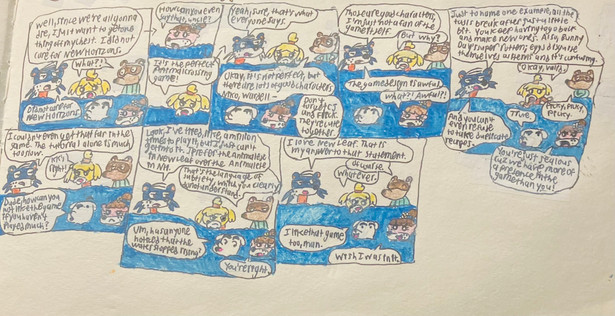 Well, since we're all gonna
die, I just want to get one
thing off my chest. I did not
care for New Horizons.
What?!
Did not care for
New Horizons
How can you even
say that, uncle?
It's the perfect
Animal Crossing
game!
Yeah, sure, that's what
everyone says.
Okay, it's not perfect, but
there are lots of good characters
like, Wardell-
Don't
Wardell
and Niko.
They're cute
together.
Those are good characters,
I'm just not a fan of the
game itself.
But why?
The game design is awful
What?! Awful?!
Just to name one example, all the
tools break after just a little
bit. You keep having to go back
and make new ones. Also, Bunny
Day super rotten; eggs disguise
themselves as items and it's confusing.
Okay, valid.
True.
Picky, picky,
picky.
And you can't
even refuse
to take duplicate
recipes.
You're just jealous
cuz we have more of
a presence in the
game than you!
I couldn't even get that far in the
game. The tutorial alone is much
too slow.
He's
right!
Dude, how can you
not like the game
if you haven't
played much?
Look, I've tried, like, a million
times to play it but I just can't
get into it. I prefer the Animalese
in New Leaf over the Animalese
in NH.
That's the language of
clearly
don't understand!
Um, has anyone
noticed that the
water stopped rising?
You're right.
I love New Leaf. That is
my answer to that statement.
Of course
Whatever.
I like that game
too, man.
Wish I was in it.